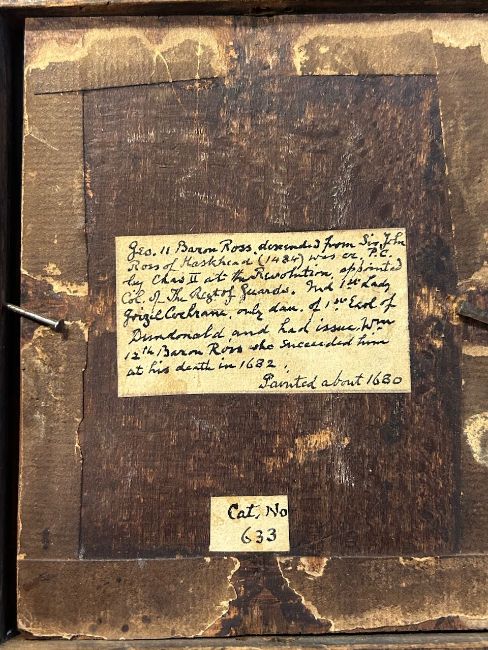 Geo. 11 Baron Ross, descended from Sir John
Ross of Haskhead (1484) was cr. P.C.
by Chas II at the Revolution, appointed
Col. of The Regt of Guards. Md 1st Lady
Grizil Cochrane, only dau. of 1st Earl of
Dundonald, and had issue, Wm
12th Baron Ross who succeeded him
at his death in 1682.
Painted about 1680
Cat. No
633